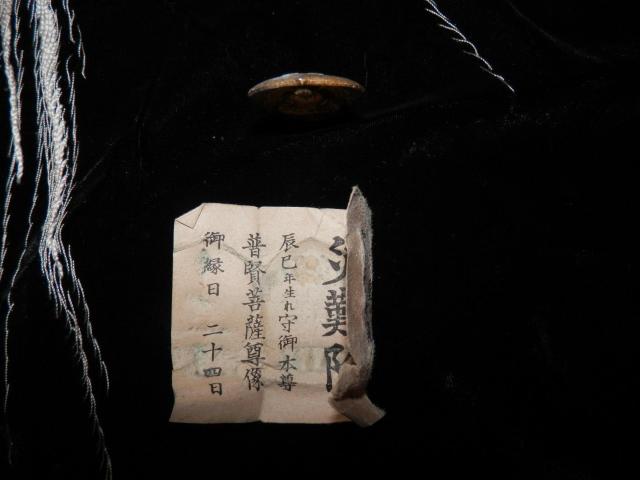 辰巳年生れ守御本尊
普賢菩薩尊像
御縁日 二十四日